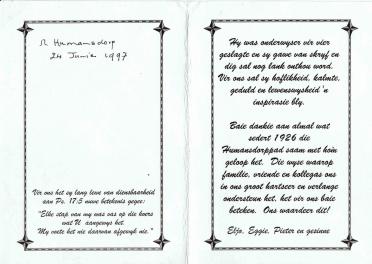 Humansdorp
24 Junie 1997
Vir ons het sy lang lewe van diensbaarheid
aan Ps. 17:5 nuwe betekenis gegee:
"Elke stap van my was vas op die koers
wat U aangewys het
My voete het nie daarvan afgewyk nie."
Hy was onderwyser vir vier
geslagte en sy gawe van skryf en
dig sal nog lank onthou word.
Vir ons sal sy hoflikheid, kalmte,
geduld en lewenswysheid 'n
inspirasie bly.
Baie dankie aan almal wat
sedert 1926 die
Humansdorppad saam met hom
geloop het. Die wyse waarop
familie, vriende en kollegas ons
in ons groot hartseer en verlange
ondersteun het, het vir ons baie
beteken. Ons waardeer dit!
Eggie, Pieter en gesinne